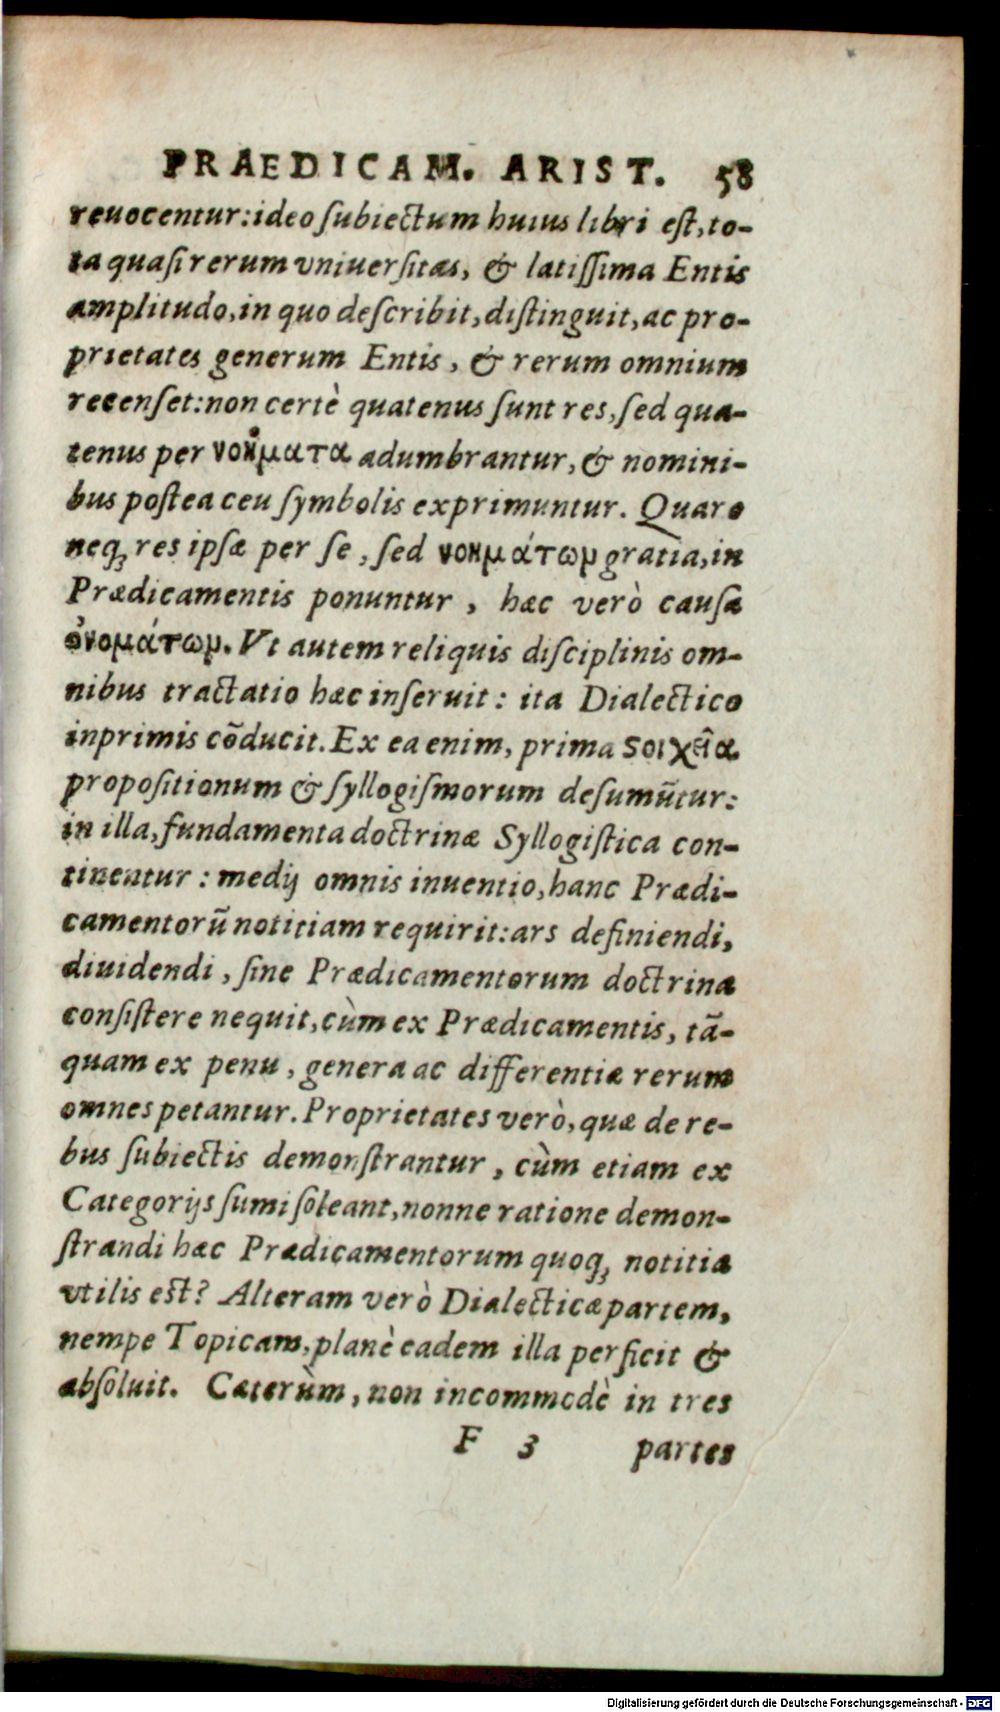 PRAEDICAM. ARIST. 58
reuocentur: ideo ſubiectum huius libri eſt, to-
ta quaſi rerum vniuerſitas, & latiſſima Entis
amplitudo, in quo deſcribit, diſtinguit, ac pro-
prietates generum Entis, & rerum omnium
recenſet: non certè quatenus ſunt res, ſed qua-
tenus per νοήματα adumbrantur, & nomini-
bus poſtea ceu ſymbolis exprimuntur. Quare
neq; res ipſæ per ſe, ſed νοημάτων gratia, in
Prædicamentis ponuntur, hæc verò cauſa
ὀνομάτων. Vt autem reliquis diſciplinis om-
nibus tractatio hæc inſeruit: ita Dialectico
inprimis cõducit. Ex ea enim, prima ϛοιχεῖα
propoſitionum & ſyllogiſmorum deſumũtur:
in illa, fundamenta doctrinæ Syllogiſtica con-
tinentur: medij omnis inuentio, hanc Prædi-
camentorũ notitiam requirit: ars definiendi,
diuidendi, ſine Prædicamentorum doctrina
conſiſtere nequit, cùm ex Prædicamentis, tã-
quam ex penu, genera ac differentiæ rerum
omnes petantur. Proprietates verò, quæ de re-
bus ſubiectis demonſtrantur, cùm etiam ex
Categorijs ſumi ſoleant, nonne ratione demon-
ſtrandi hæc Prædicamentorum quoq; notitia
vtilis eſt? Alteram verò Dialecticæ partem,
nempe Topicam, planè eadem illa perficit &
abſoluit. Cæterùm, non incommodè in tres
F 3 partes
Digitalisierung gefördert durch die Deutsche Forschungsgemeinschaft - DFG